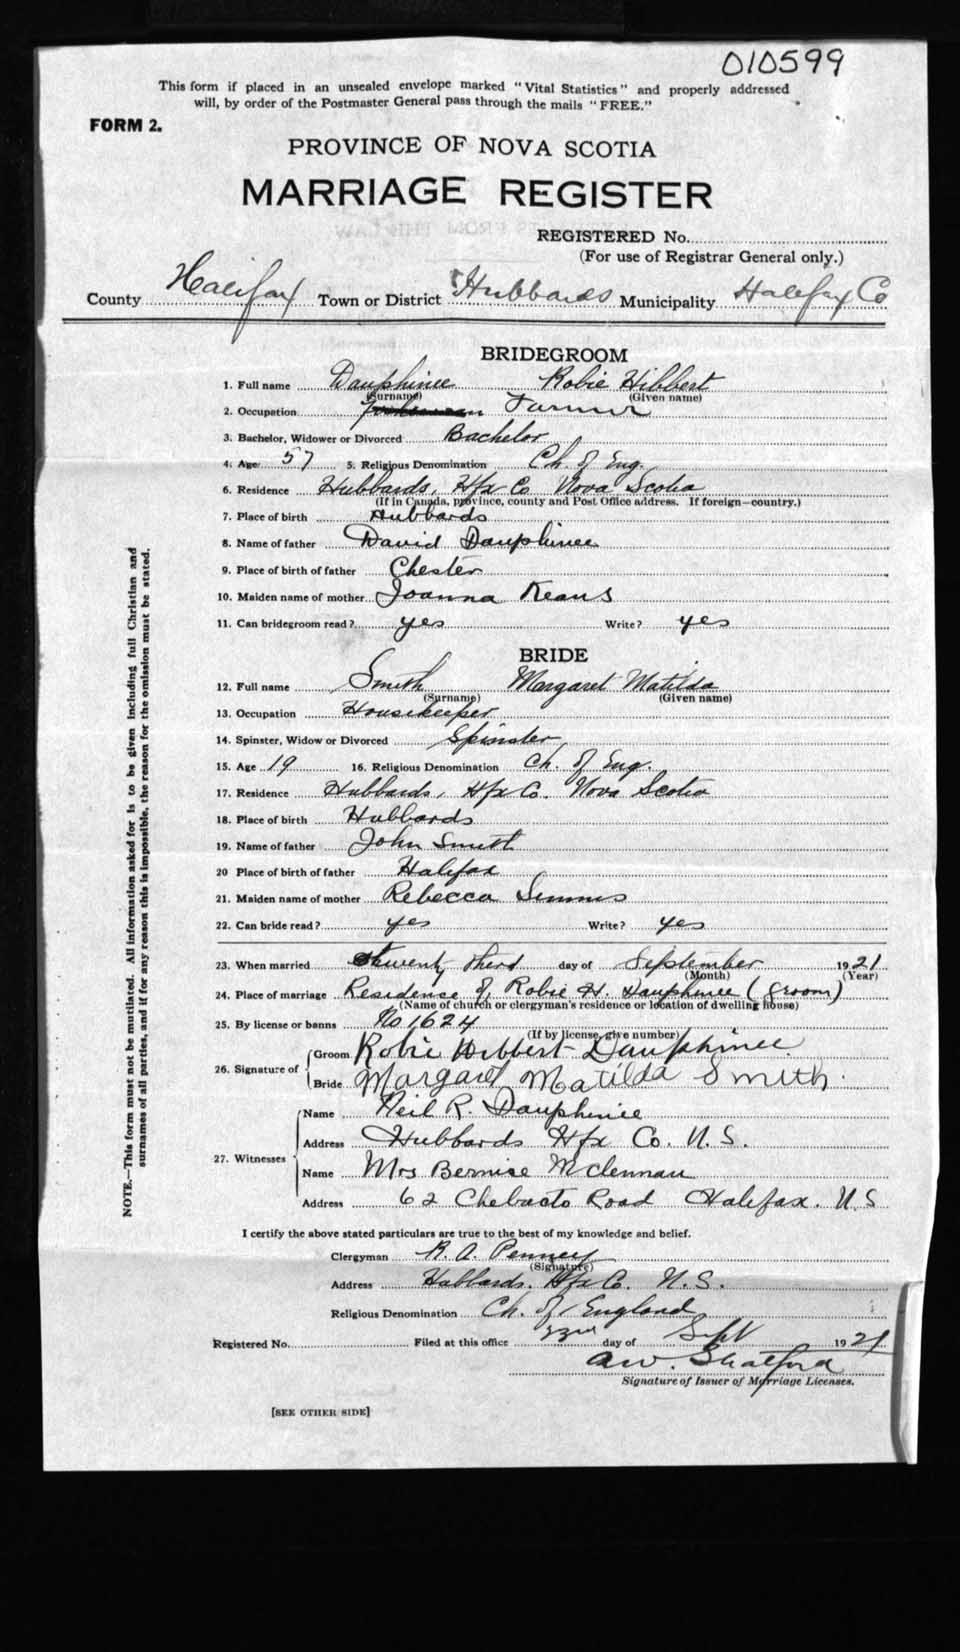 010599
This form if placed in an unsealed envelope marked "Vital Statistics" and properly addressed
will, by order of the Postmaster General pass through the mails "FREE."
FORM 2.
PROVINCE OF NOVA SCOTIA
MARRIAGE REGISTER
REGISTERED No.
(For use of Registrar General only.)
County Halifax Town or District Hubbards Municipality Halifax Co
BRIDEGROOM
1. Full name Dauphinee Robie Hibbert
(Surname) (Given name)
2. Occupation Farmer
3. Bachelor, Widower or Divorced Bachelor
4. Age 57 5. Religious Denomination Ch. of Eng.
6. Residence Hubbards, Hfx Co Nova Scotia
(If in Canada, province, county and Post Office address. If foreign—country.)
7. Place of birth Hubbards
8. Name of father David Dauphinee
9. Place of birth of father Chester
10. Maiden name of mother Joanna Keans
11. Can bridegroom read? yes Write? yes
BRIDE
12. Full name Smith Margaret Matilda
(Surname) (Given name)
13. Occupation Housekeeper
14. Spinster, Widow or Divorced Spinster
15. Age 19 16. Religious Denomination Ch. of Eng.
17. Residence Hubbards, Hfx Co. Nova Scotia
18. Place of birth Hubbards
19. Name of father John Smith
20 Place of birth of father Halifax
21. Maiden name of mother Rebecca Simms
22. Can bride read? yes Write? yes
23. When married twenty third day of September 1921
(Month) (Year)
24. Place of marriage Residence of Robie H. Dauphinee (Groom)
(Name of church or clergyman's residence or location of dwelling house)
25. By license or banns No 1624
(If by license, give number)
26. Signature of Groom Robie Hibbert Dauphinee.
Bride Margaret Matilda Smith.
27. Witnesses Name Neil R. Dauphinee
Address Hubbards Hfx Co. N.S.
Name Mrs Bernise McLennan
Address 62 Chebucto Road Halifax. N.S
I certify the above stated particulars are true to the best of my knowledge and belief.
Clergyman R. A. Penney
(Signature)
Address Hubbards. Hfx Co. N.S.
Religious Denomination Ch. of England
Registered No. Filed at this office day of Sept 1921
A.W. Shatford
Signature of Issuer of Marriage Licenses.
[SEE OTHER SIDE]
NOTE.—This form must not be mutilated. All information asked for is to be given including full Christian and
surnames of all parties, and if for any reason this is impossible, the reason for the omission must be stated.